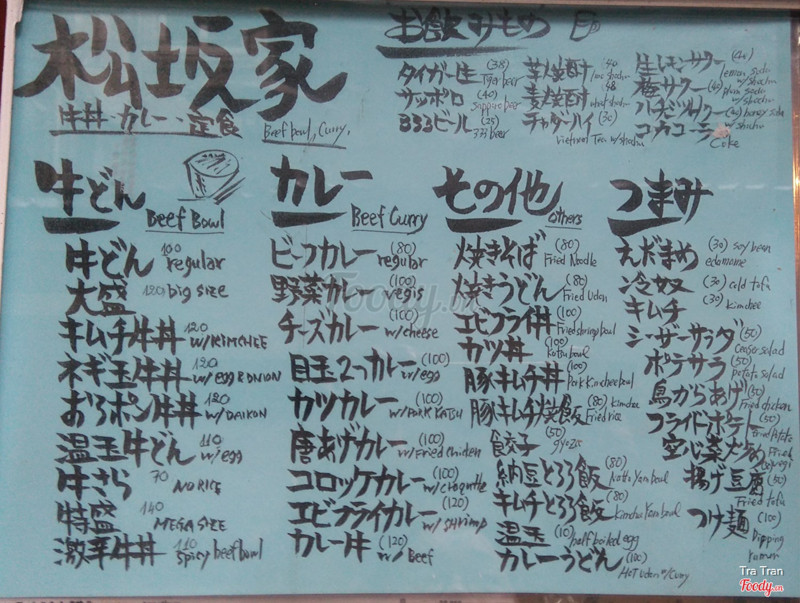 松坂家
牛丼・カレー・定食
Beef bowl, Curry,
お飲みもの
タイガー生 (38) Tiger beer
サッポロ (40) sapporo beer
333ビール (25) 333 beer
芋焼酎 40
麦焼酎 48
チャダーハイ (30) vietnam Tea w/shochu
生レモンサワー (40) lemon soda w/shochu
梅サワー plum soda w/shochu
ハチミツサワー honey soda w/shochu
コカコーラ Coke
牛どん Beef Bowl
牛どん 100 regular
大盛 120 big size
キムチ牛丼 120 w/KIMCHEE
ネギ玉牛丼 120 w/egg & ONION
おろポン牛丼 120 w/DAIKON
温玉牛どん 110 w/egg
牛さら 70 NO RICE
特盛 140 MEGA SIZE
激辛牛丼 110 spicy beef bowl
カレー Beef Curry
ビーフカレー (80) regular
野菜カレー (100) vegis
チーズカレー (100) w/cheese
目玉2つカレー (100) w/egg
カツカレー (100) w/PORK KATSU
唐あげカレー (100) w/Fried chicken
コロッケカレー (100) w/croquette
エビフライカレー (120) w/SHrimp
カレー牛 (120) w/ Beef
その他 others
焼きそば (80) Fried Noodle
焼きうどん (80) Fried Udon
エビフライ丼 (100) Fried shrimp bowl
カツ丼 (100) Katsu bowl
豚キムチ丼 (100) Pork Kimchee bowl
豚キムチ焼飯 (80) Kimchee Fried rice
餃子 (50) gyoza
納豆とろろ飯 (80) Natto Yam bowl
キムチとろろ飯 (80) Kimchee Yam bowl
温玉 (10) half boiled egg
カレーうどん (100) HoT Udon w/Curry
つまみ
えだまめ (30) soy bean edamame
冷奴 (30) cold tofu
キムチ (30) Kimchee
シーザーサラダ (50) Ceaser salad
ポテサラ (50) potato salad
鳥からあげ (50) Fried chicken
フライドポテト (50) Fried Potato
空心菜炒め Fried
揚げ豆腐 (50) Fried tofu
つけ麺 (100) Dipping ramen
Foody.vn
Tra Tran
Foody.vn